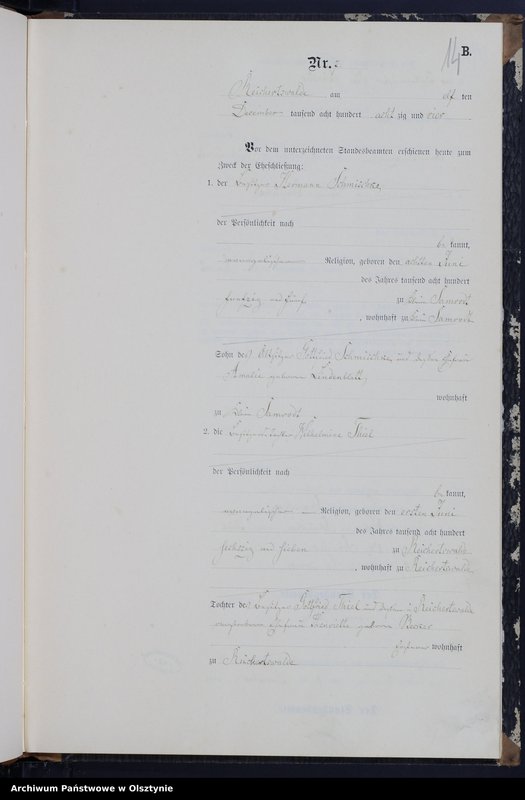 14
B.
Nr.
Reichertswalde am elf ten
December tausend acht hundert acht zig und vier
Vor dem unterzeichneten Standesbeamten erschienen heute zum
Zweck der Eheschließung:
1. der Besitzer Hermann Schmischke,
der Persönlichkeit nach
be kannt,
evangelischer Religion, geboren den achten Juni
des Jahres tausend acht hundert
funfzig und fünf zu Klein Samrodt
, wohnhaft zu Klein Samrodt
Sohn des Gottfried Schmischke und dessen Ehefrau
Amalie geborene Lindenblatt,
wohnhaft
zu Klein Samrodt
2. die Besitzertochter Wilhelmine Thiel
der Persönlichkeit nach
be kannt,
evangelischer Religion, geboren den ersten Juni
des Jahres tausend acht hundert
sechszig und sieben zu Reichertswalde
, wohnhaft zu Reichertswalde
Tochter des Besitzer Gottfried Thiel und dessen in Reichertswalde
verstorbenen Ehefrau geborene
wohnhaft
zu Reichertswalde
Archiwum Państwowe w Olsztynie